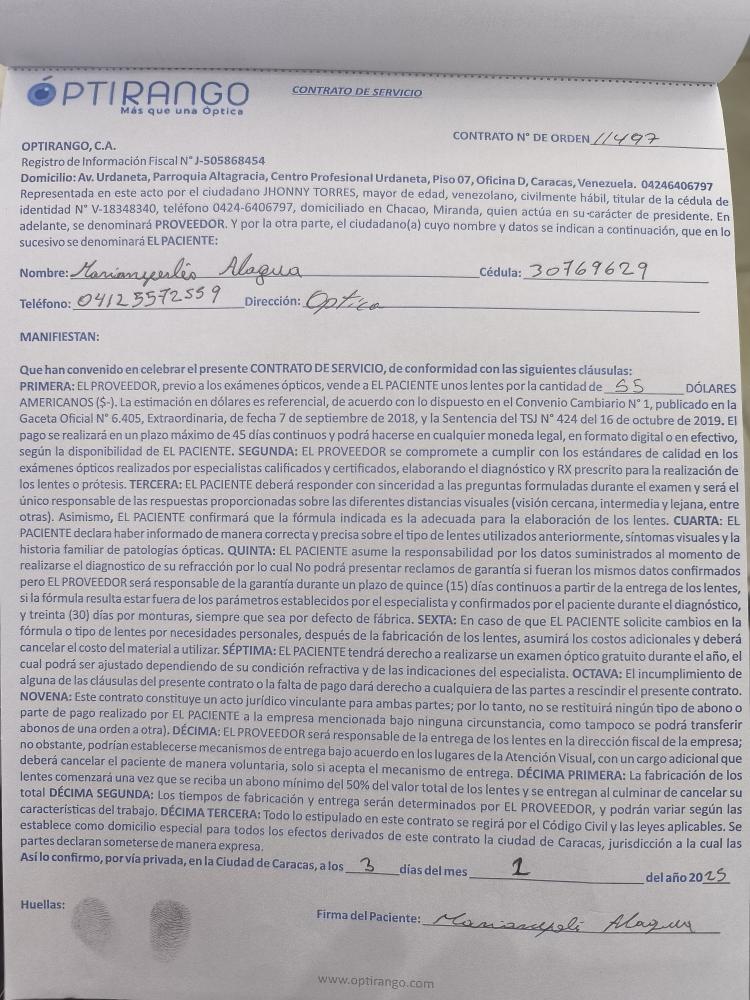 ÓPTIRANGO
Más que una Óptica
CONTRATO DE SERVICIO
CONTRATO N° DE ORDEN 11497
OPTIRANGO, C.A.
Registro de Información Fiscal N° J-505868454
Domicilio: Av. Urdaneta, Parroquia Altagracia, Centro Profesional Urdaneta, Piso 07, Oficina D, Caracas, Venezuela. 04246406797
Representada en este acto por el ciudadano JHONNY TORRES, mayor de edad, venezolano, civilmente hábil, titular de la cédula de
identidad N° V-18348340, teléfono 0424-6406797, domiciliado en Chacao, Miranda, quien actúa en su carácter de presidente. En
adelante, se denominará PROVEEDOR. Y por la otra parte, el ciudadano(a) cuyo nombre y datos se indican a continuación, que en lo
sucesivo se denominará EL PACIENTE:
Nombre: Alagua Cédula: 30769629
Teléfono: 04125572559 Dirección: Optica
MANIFIESTAN:
Que han convenido en celebrar el presente CONTRATO DE SERVICIO, de conformidad con las siguientes cláusulas:
PRIMERA: EL PROVEEDOR, previo a los exámenes ópticos, vende a EL PACIENTE unos lentes por la cantidad de 55 DÓLARES
AMERICANOS ($-). La estimación en dólares es referencial, de acuerdo con lo dispuesto en el Convenio Cambiario N° 1, publicado en la
Gaceta Oficial N° 6.405, Extraordinaria, de fecha 7 de septiembre de 2018, y la Sentencia del TSJ N° 424 del 16 de octubre de 2019. El
pago se realizará en un plazo máximo de 45 días continuos y podrá hacerse en cualquier moneda legal, en formato digital o en efectivo,
según la disponibilidad de EL PACIENTE. SEGUNDA: EL PROVEEDOR se compromete a cumplir con los estándares de calidad en los
exámenes ópticos realizados por especialistas calificados y certificados, elaborando el diagnóstico y RX prescrito para la realización de
los lentes o prótesis. TERCERA: EL PACIENTE deberá responder con sinceridad a las preguntas formuladas durante el examen y será el
único responsable de las respuestas proporcionadas sobre las diferentes distancias visuales (visión cercana, intermedia y lejana, entre
otras). Asimismo, EL PACIENTE confirmará que la fórmula indicada es la adecuada para la elaboración de los lentes. CUARTA: EL
PACIENTE declara haber informado de manera correcta y precisa sobre el tipo de lentes utilizados anteriormente, síntomas visuales y la
historia familiar de patologías ópticas. QUINTA: EL PACIENTE asume la responsabilidad por los datos suministrados al momento de
realizarse el diagnostico de su refracción por lo cual No podrá presentar reclamos de garantía si fueran los mismos datos confirmados
pero EL PROVEEDOR será responsable de la garantía durante un plazo de quince (15) días continuos a partir de la entrega de los lentes,
si la fórmula resulta estar fuera de los parámetros establecidos por el especialista y confirmados por el paciente durante el diagnóstico,
y treinta (30) días por monturas, siempre que sea por defecto de fábrica. SEXTA: En caso de que EL PACIENTE solicite cambios en la
fórmula o tipo de lentes por necesidades personales, después de la fabricación de los lentes, asumirá los costos adicionales y deberá
cancelar el costo del material a utilizar. SÉPTIMA: EL PACIENTE tendrá derecho a realizarse un examen óptico gratuito durante el año, el
cual podrá ser ajustado dependiendo de su condición refractiva y de las indicaciones del especialista. OCTAVA: El incumplimiento de
alguna de las cláusulas del presente contrato o la falta de pago dará derecho a cualquiera de las partes a rescindir el presente contrato.
NOVENA: Este contrato constituye un acto jurídico vinculante para ambas partes; por lo tanto, no se restituirá ningún tipo de abono o
parte de pago realizado por EL PACIENTE a la empresa mencionada bajo ninguna circunstancia, como tampoco se podrá transferir
abonos de una orden a otra). DÉCIMA: EL PROVEEDOR será responsable de la entrega de los lentes en la dirección fiscal de la empresa;
no obstante, podrían establecerse mecanismos de entrega bajo acuerdo en los lugares de la Atención Visual, con un cargo adicional que
deberá cancelar el paciente de manera voluntaria, solo si acepta el mecanismo de entrega. DÉCIMA PRIMERA: La fabricación de los
lentes comenzará una vez que se reciba un abono mínimo del 50% del valor total de los lentes y se entregan al culminar de cancelar su
total DÉCIMA SEGUNDA: Los tiempos de fabricación y entrega serán determinados por EL PROVEEDOR, y podrán variar según las
características del trabajo. DÉCIMA TERCERA: Todo lo estipulado en este contrato se regirá por el Código Civil y las leyes aplicables. Se
establece como domicilio especial para todos los efectos derivados de este contrato la ciudad de Caracas, jurisdicción a la cual las
partes declaran someterse de manera expresa.
Así lo confirmo, por vía privada, en la Ciudad de Caracas, a los 3 días del mes 1 del año 2025
Huellas:
Firma del Paciente: Alagua
www.optirango.com